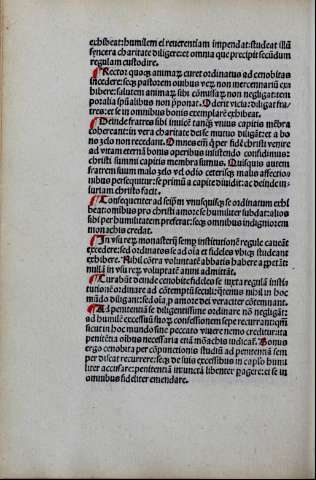 exhibeat: humilem ei reuerentiam impendat: studeat illū
syncera charitate diligere: et omnia que precipit secūdum
regulam custodire.
¶ Rector quoqȝ animaꝝ curet ordinatus ad cenobitas
incedere: seqȝ pastorem ouibus veꝝ: non mercennariū ex-
hibere: salutem animaꝝ sibi cōmissaꝝ non negligat: tem
poralia spūalibus non p̄ponat. Oderit vicia: diligat fra
tres: et se in omnibus bonis exemplarē exhibeat.
¶ Deinde fratres sibi inuicē tanqȝ vnius capitis mēbra
cohereant: in vera charitate dei se mutuo diligāt: et a bo
no zelo non recedant. Omnes em̄ q̇ per fidē christi venire
ad vitam eternā bonis operibus insistendo confidimus:
christi summi capitis membra sumus. Quisquis autem
fratrem suum malo zelo vel odio ceterisqȝ malis affectio
nibus persequitur: se primū a capite diuidit: ac deinde in
iuriam christo facit.
¶ Consequenter ad seip̄m vnusquisqȝ se ordinatum exhi
beat: omnibus pro christi amore se humiliet subdat: alios
sibi per humilitatem preferat: seqȝ omnibus indigniorem
monachis credat.
¶ In vsu reꝝ monasterij semp̄ institutionē regule caueāt
excedere: sed ordinatos se ad oīa et fideles vbiqȝ studeant
exhibere. Nihil cōtra voluntatē abbatis habere appetāt:
nullā in vsu reꝝ voluptatē animi admittāt.
¶ Curabūt deinde cenobite fideles se iuxta regulā insti-
tutionē ordinare ad cōtemptū seculi: q̄tenus nihil in hoc
mūdo diligant: sed oīa p̱ amore dei veraciter cōtemnant.
¶ Ad penitentiā se diligentissime ordinare nō negligāt:
ad humilē excessuū suoꝝ confessionem sepe recurrant: qm̄
sicut in hoc mundo sine peccato viuere nemo creditur: ita
penitētia oībus necessaria etiā mōachis iudicaṫ. Bonus
ergo cenobita per cōpunctionis studiū ad penitentiā sem
per discat recurrere: seqȝ de suis excessibus in capl̄o humi
liter accusare: penitentiā iniunctā libenter p̱agere: et se in
omnibus fideliter emendare.